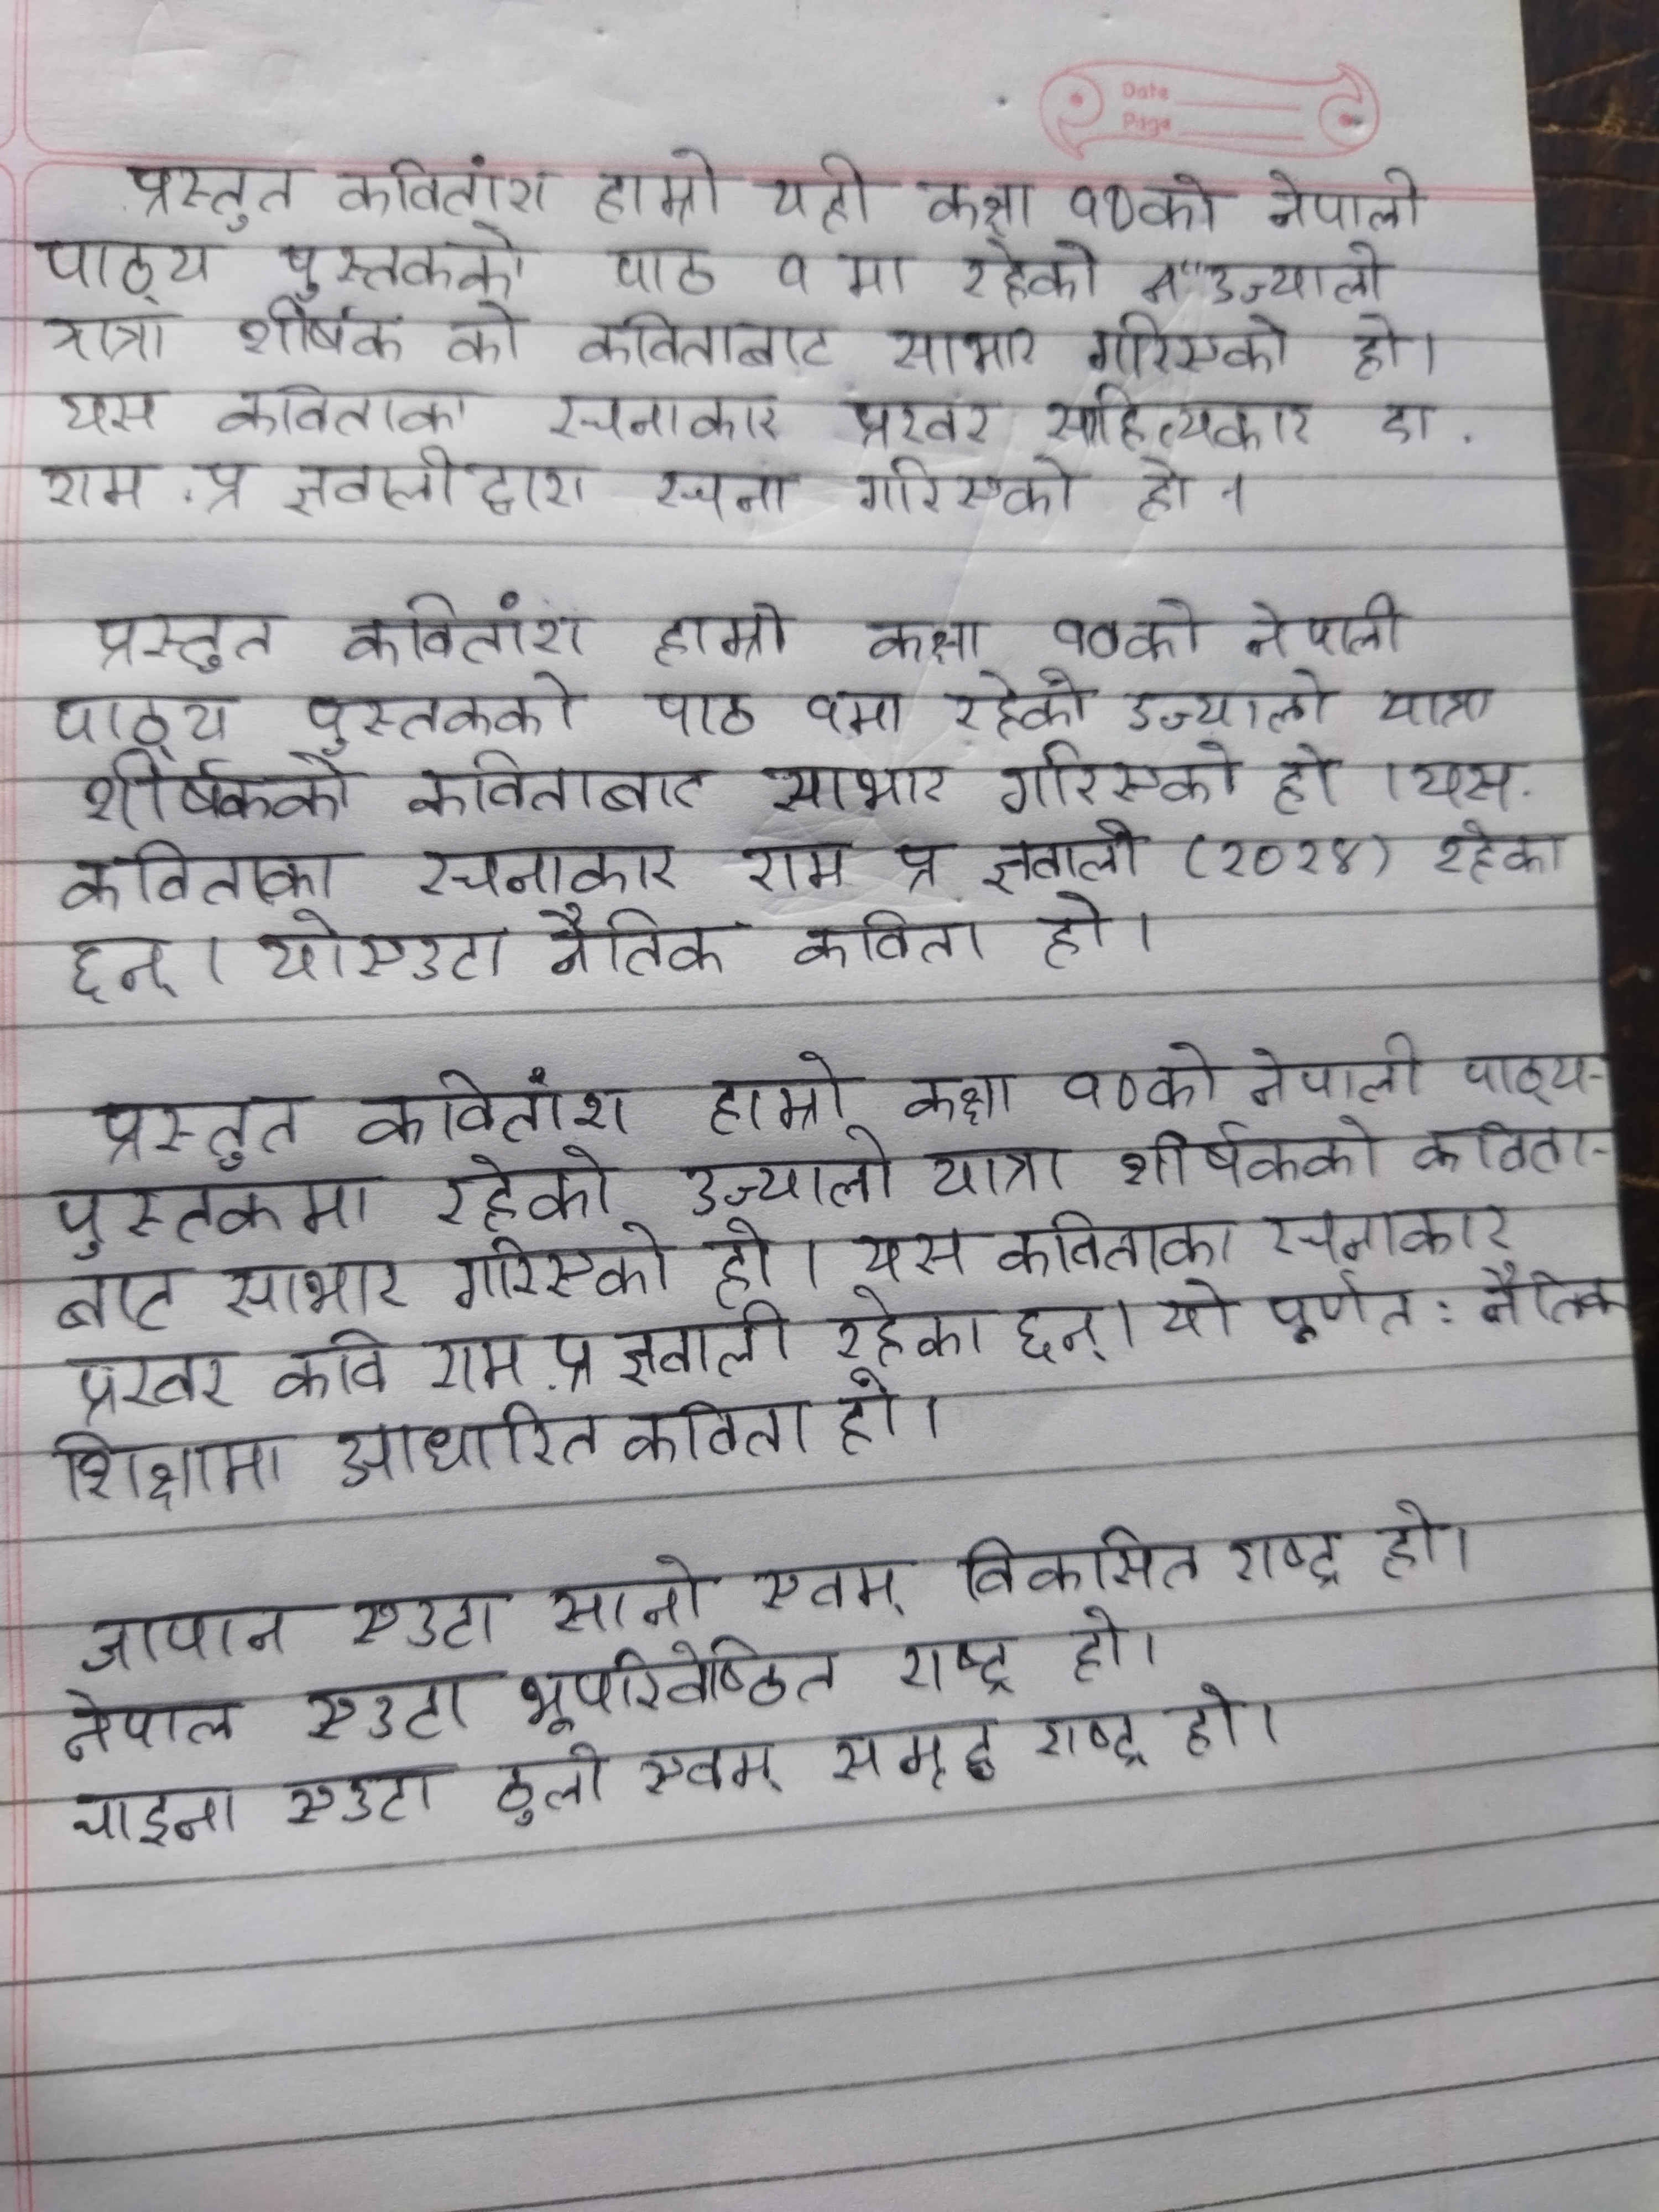 Date
Page
प्रस्तुत कवितांश हाम्रो यही कक्षा १०को नेपाली
पाठ्य पुस्तकको पाठ १ मा रहेको "उज्यालो
यात्रा शीर्षक को कविताबाट साभार गरिएको हो।
यस कविताका रचनाकार प्रखर साहित्यकार डा.
राम .प्र ज्ञवालीद्वारा रचना गरिएको हो ।
प्रस्तुत कवितांश हाम्रो कक्षा १०को नेपाली
पाठ्य पुस्तकको पाठ १मा रहेको उज्यालो यात्रा
शीर्षकको कविताबाट साभार गरिएको हो ।यस
कविताका रचनाकार राम प्र ज्ञवाली (२०२४) रहेका
छन्। योएउटा नैतिक कविता हो।
प्रस्तुत कवितांश हाम्रो कक्षा १०को नेपाली पाठ्य-
पुस्तकमा रहेको उज्यालो यात्रा शीर्षकको कविता-
बाट साभार गरिएको हो। यस कविताका रचनाकार
प्रखर कवि राम.प्र ज्ञवाली रहेका छन्। यो पूर्णत: नैतिक
शिक्षामा आधारित कविता हो।
जापान एउटा सानो एवम् विकसित राष्ट्र हो।
नेपाल एउटा भूपरिवेष्ठित राष्ट्र हो।
चाइना एउटा ठुलो एवम् समृद्ध राष्ट्र हो।